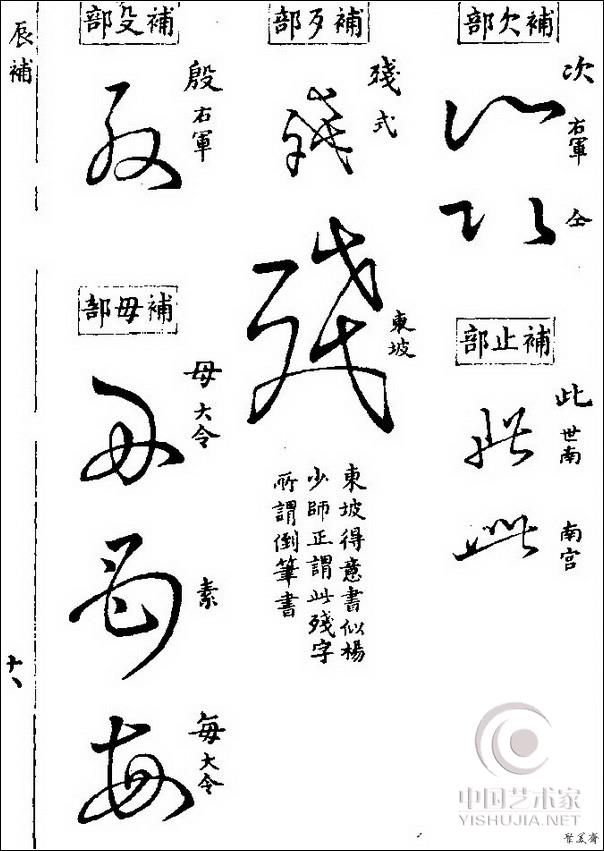 補欠部
次 右軍
仝
補止部
此 世南
南宮
補歹部
殘 式
東坡
東坡得意書似楊
少師正謂此殘字
所謂倒筆書
補殳部
殷 右軍
補毋部
母 大令
素
每 大令
辰補
十八
中国艺术家
YISHUJIA.NET